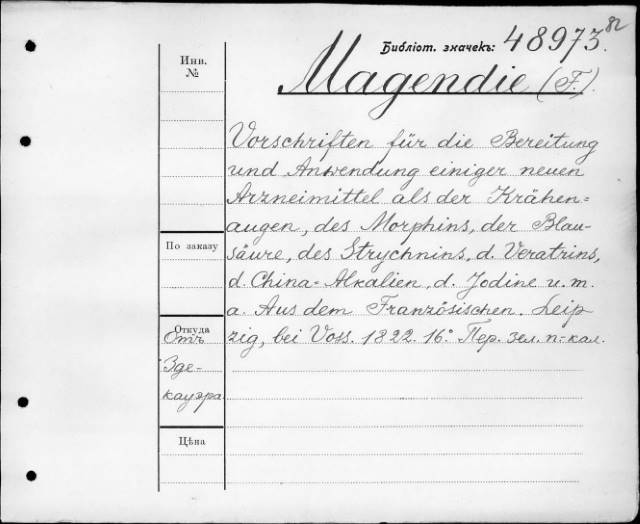 82
Библіот. значекъ: 48973.
Инв.
№
Magendie (F.).
Vorschriften für die Bereitung
und Anwendung einiger neuen
Arzneimittel als der Krähen=
augen, des Morphins, der Blau-
säure, des Strychnins, d. Veratrins,
По заказу
d. China=Alkalien, d. Jodine u. m.
a. Aus dem Französischen. Leip
zig, bei Voss. 1822. 16°. Пер. зел. п-кал.
Откуда
Отъ
Зде-
кауэра
Цѣна